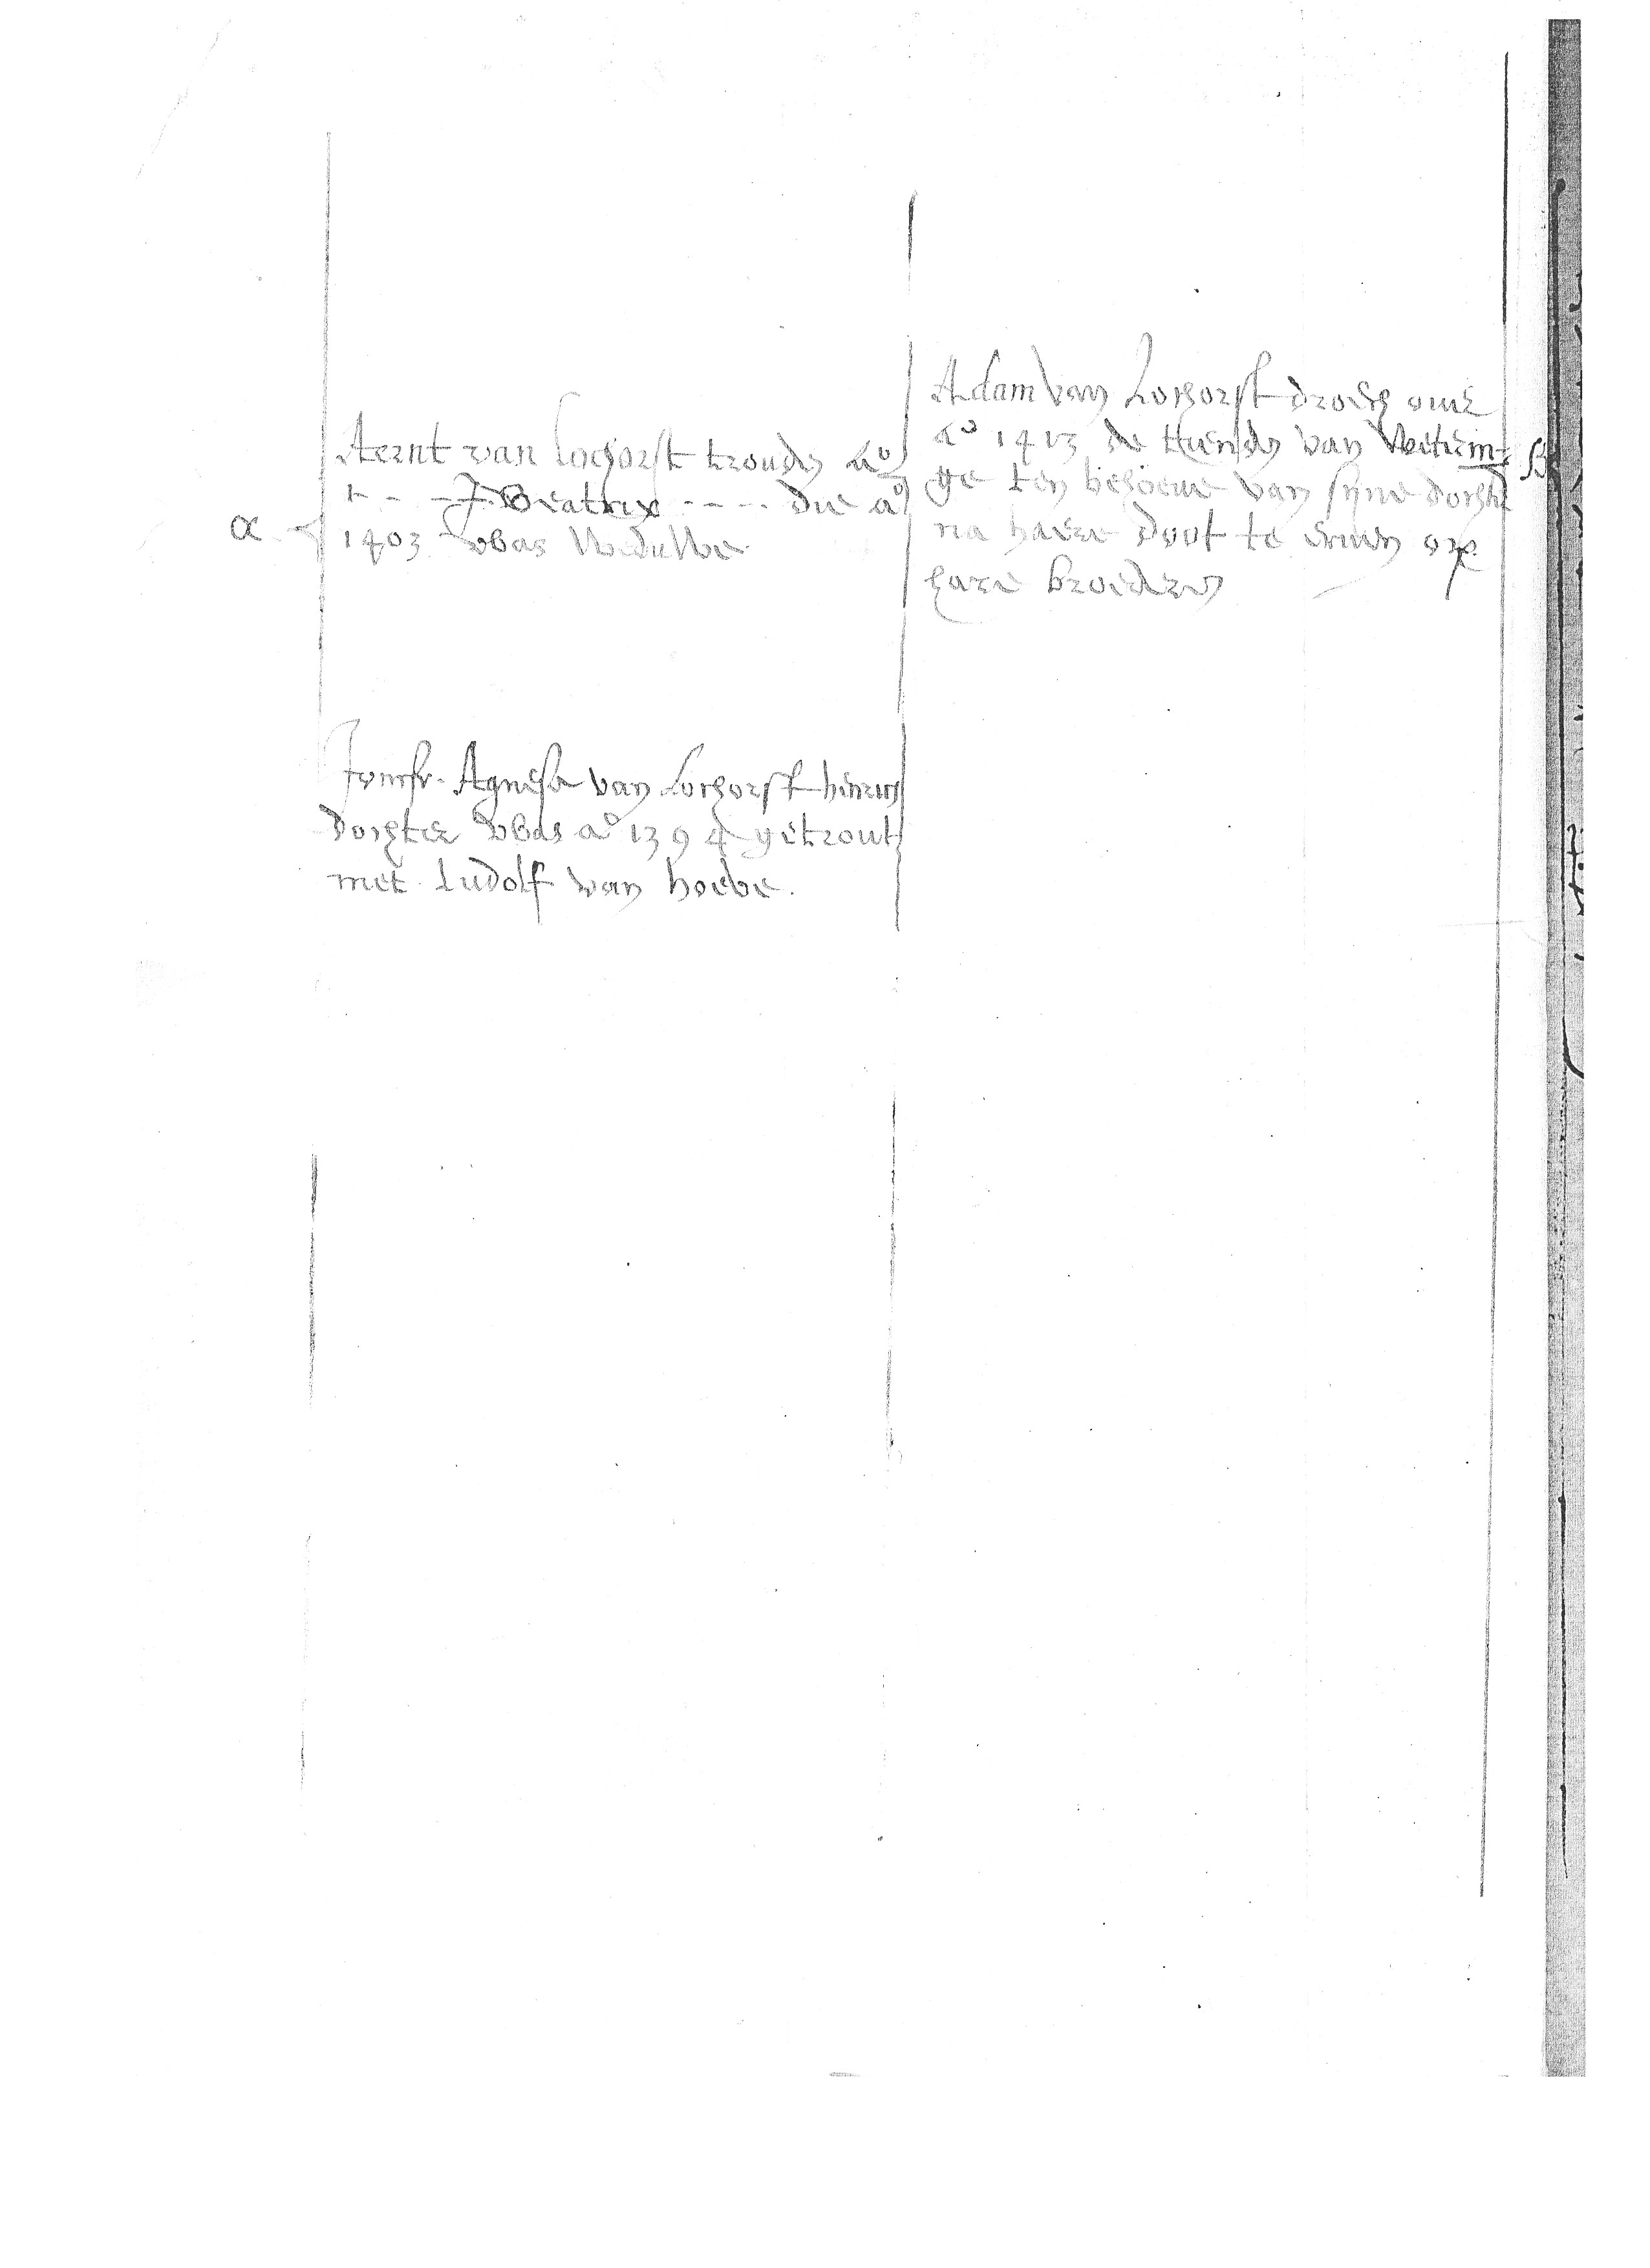 Aernt van Lochorst troude Ao
1 - - - J. Beatrix - - - - die ao
α
1403 was Weduwe
Jouffr. Agnese van Lochorst henrics
dochter was ao 1394 getrout
met Ludolf van hoeve.
Adam van Lochorst droech over
Ao 1413 de tienden van Weterin-
ge ten behoeve van sijne dochter
na haere doot te erven op
hare broeders